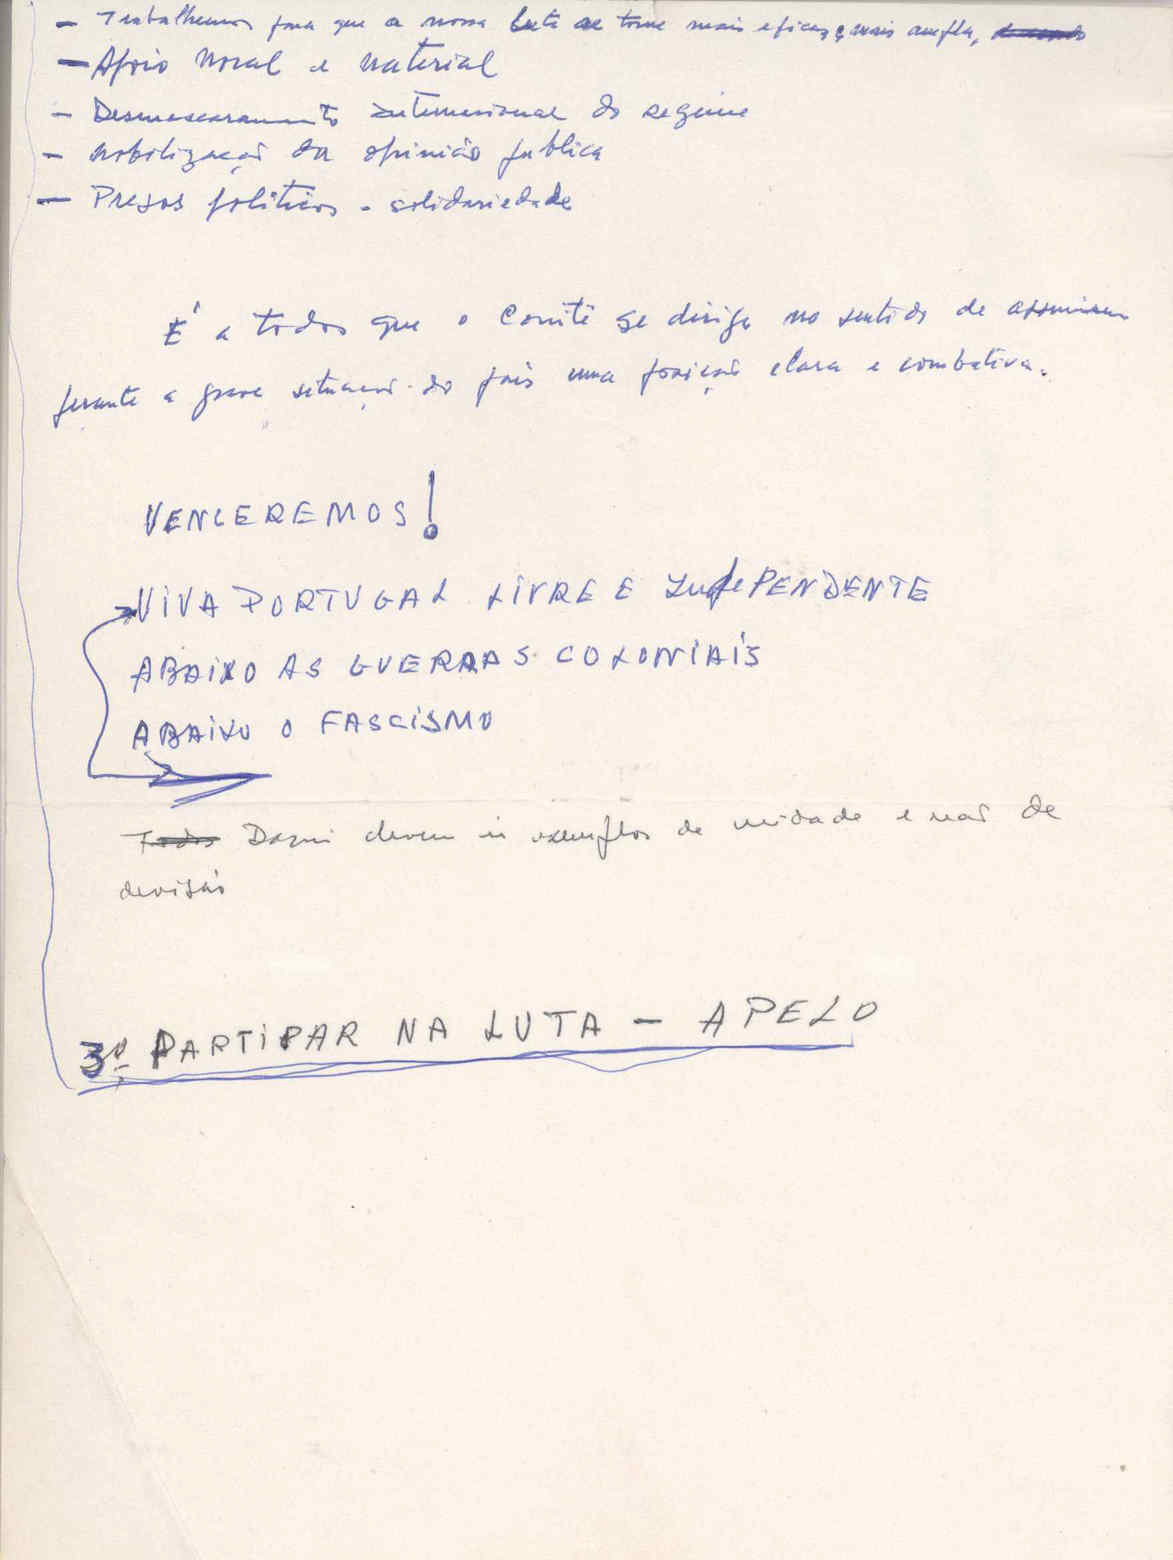 - Trabalhemos para que a nossa luta se torne mais eficaz e mais ampla,
- Apoio moral e material
- Desmascaramento internacional do regime
- Mobilização da opinião publica
- Presos politicos - solidariedade
É a todos que o Comité se dirige no sentido de assumirem
perante a grave situação do país uma posição clara e combativa.
VENCEREMOS!
VIVA PORTUGAL LIVRE E IndePENDENTE
ABAIXO AS GUERRAS COLONIAIS
ABAIXO O FASCISMO
Todos Daqui devem ir exemplos de unidade e não de
devisão
3º PARTIPAR NA LUTA - APELO